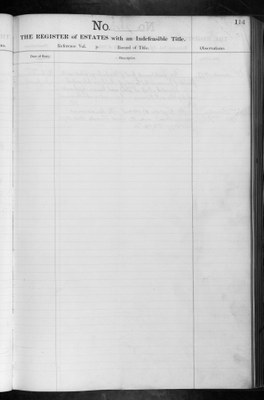 114
No.
THE REGISTER of ESTATES with an Indefeasible Title.
Reference Vol. p. Record of Title.
Observations.
Date of Entry.
Description